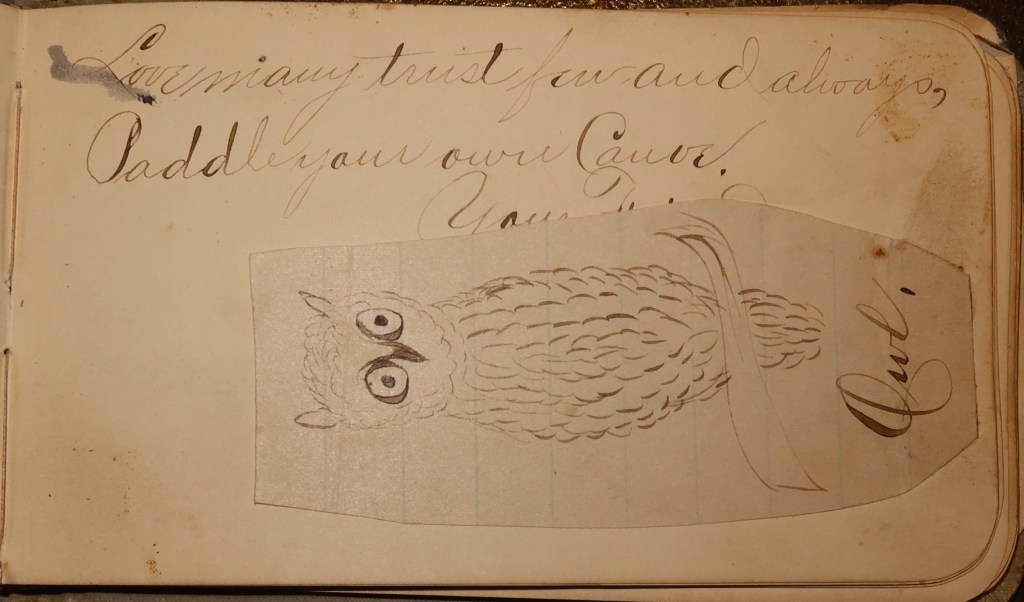 Love many trust few and always,
Paddle your own Canoe.
Your
Owl.